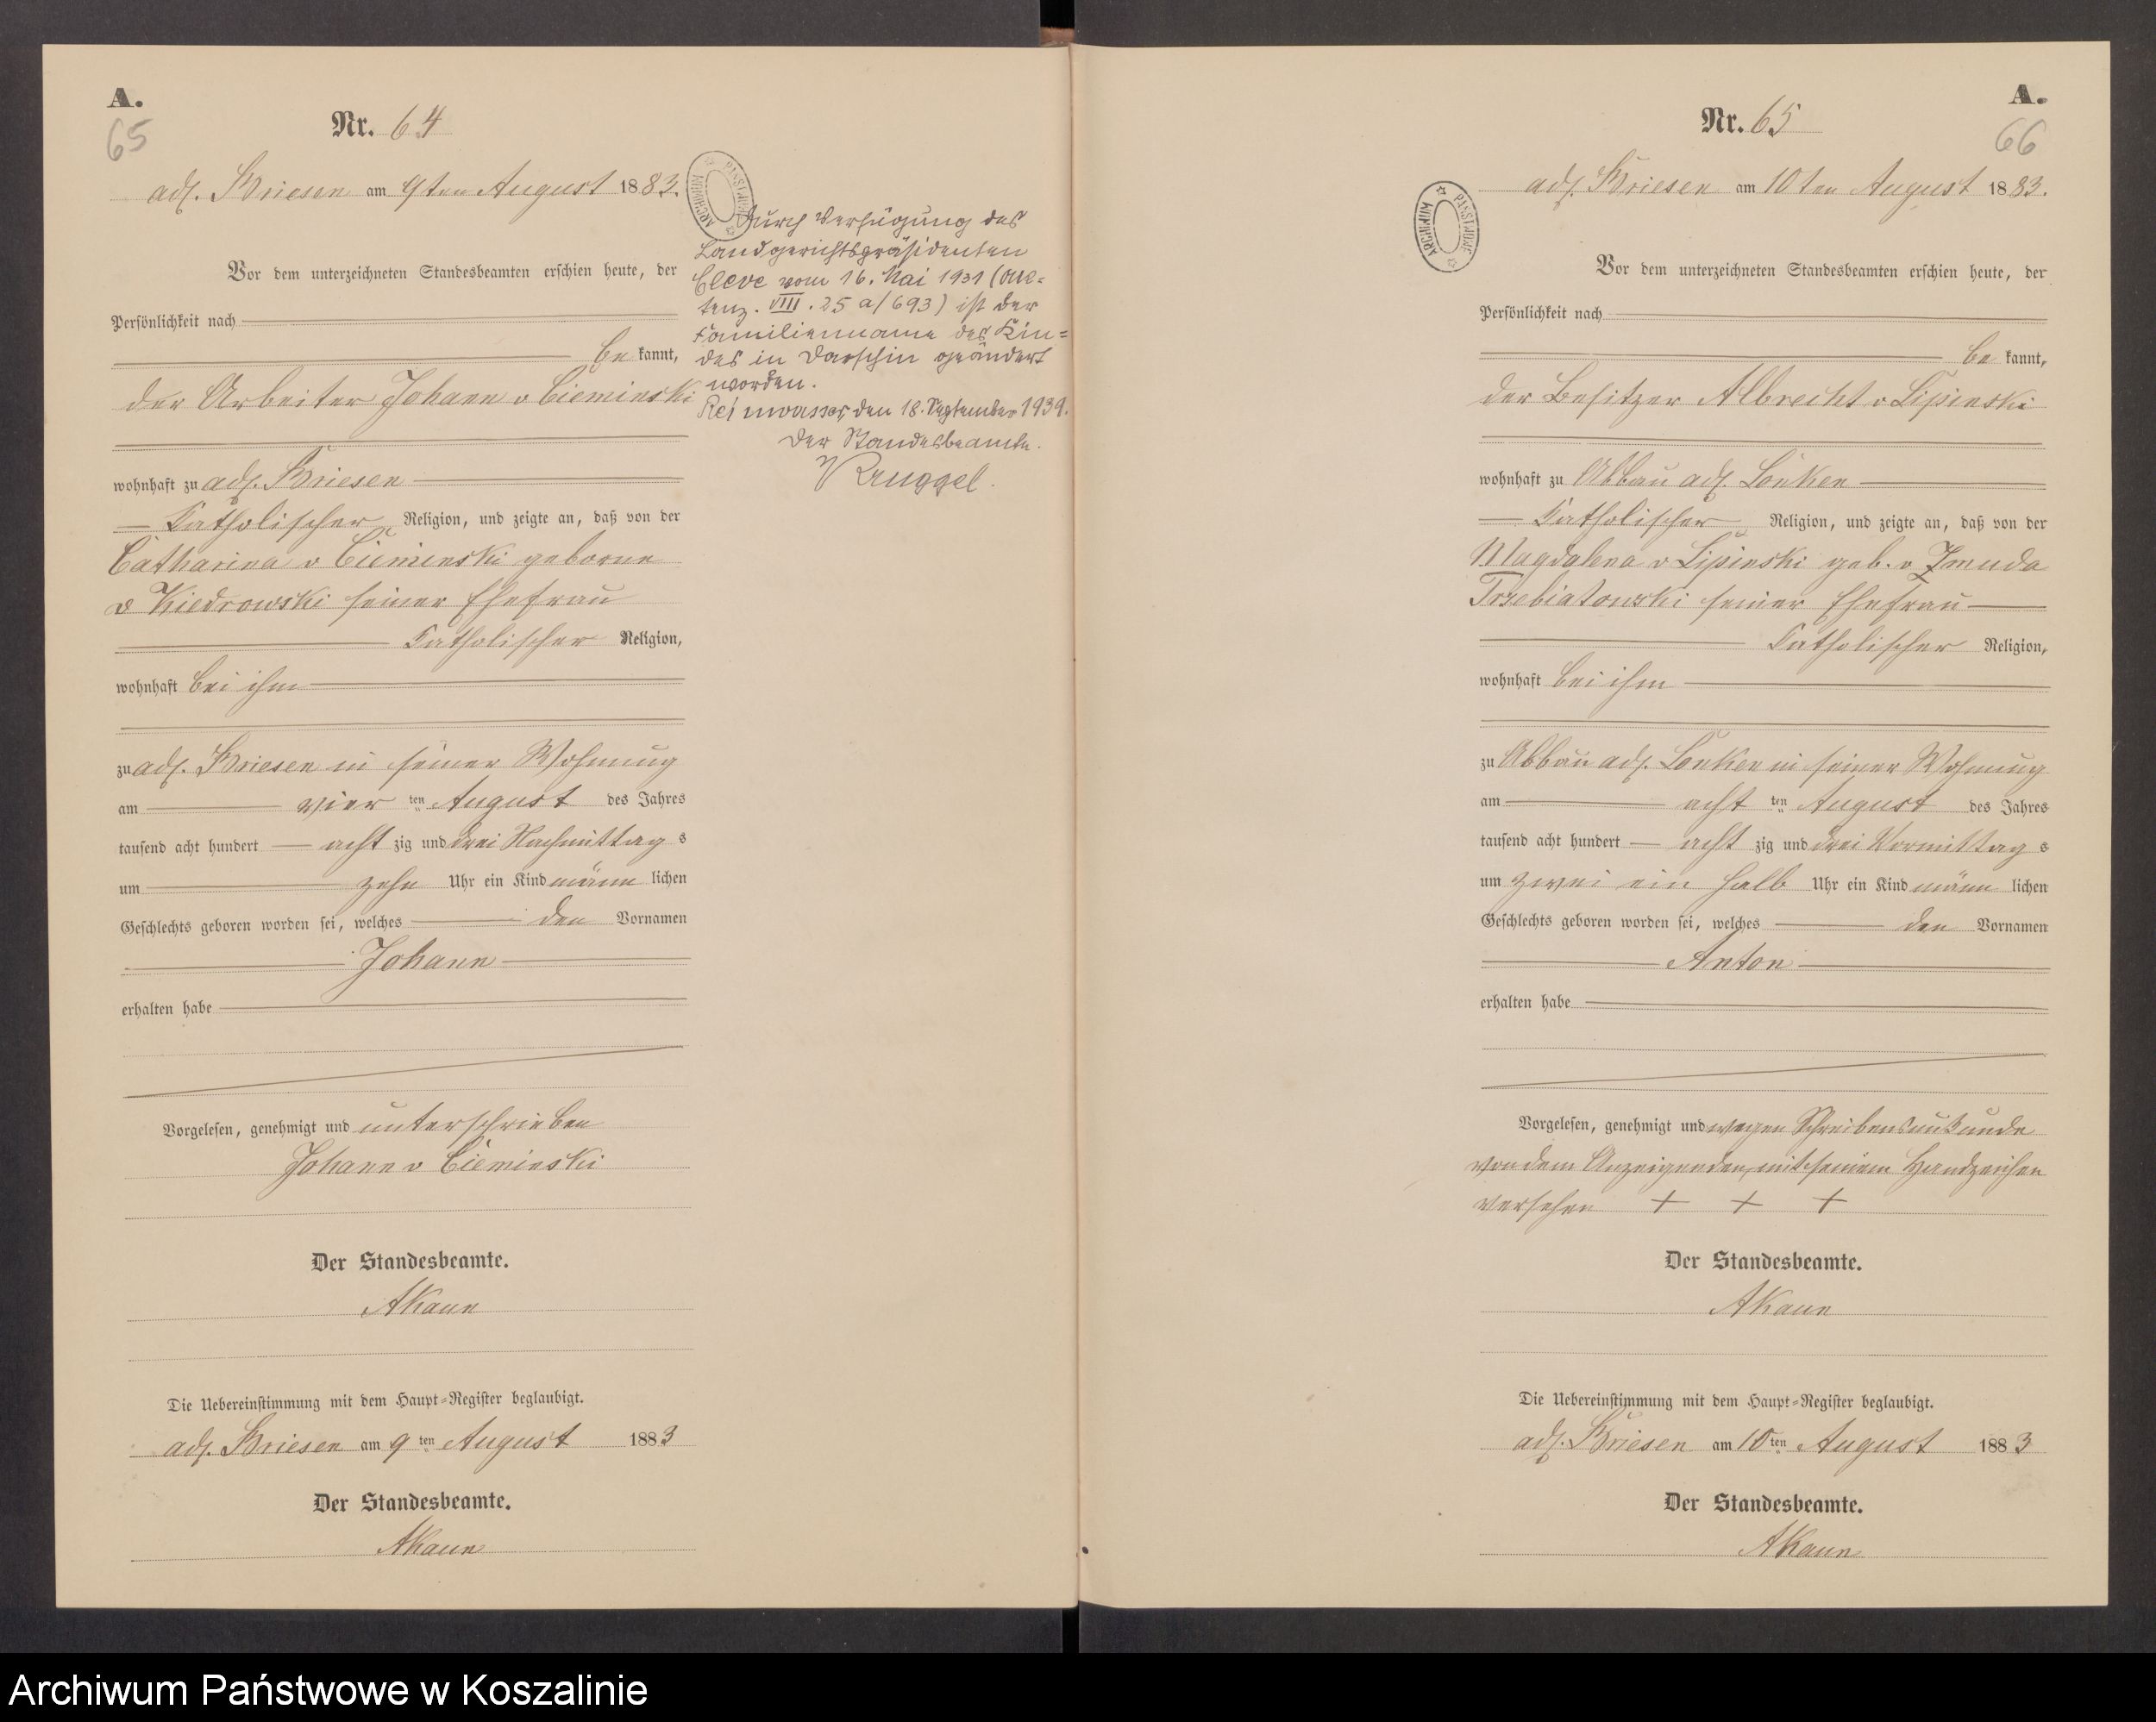 A.
65
Nr. 64
adl. Briesen am 9ten August 1883.
Vor dem unterzeichneten Standesbeamten erschien heute, der
Persönlichkeit nach
be kannt,
der Arbeiter Johann v Cieminski
wohnhaft zu adl. Briesen
Katholischer Religion, und zeigte an, daß von der
Catharina v Cieminski geborne
v Kiedrowski seiner Ehefrau
Katholischer Religion,
wohnhaft bei ihm
zu adl. Briesen in seiner Wohnung
am vier ten August des Jahres
tausend acht hundert acht zig und drei Nachmittag s
um zehn Uhr ein Kind männ lichen
Geschlechts geboren worden sei, welches den Vornamen
Johann
erhalten habe
Vorgelesen, genehmigt und unterschrieben
Johann v Cieminski
Der Standesbeamte.
AKann
Die Uebereinstimmung mit dem Haupt-Register beglaubigt.
adl. Briesen am 9 ten August 1883
Der Standesbeamte.
AKann
ARCHIWUM PAŃSTWOWE
Durch Verfügung des
Landgerichtspräsidenten
Cleve vom 16. Mai 1931 (Akt-
enz. VIII. 25 a/693) ist der
Familienname des Kin-
des in Darschin geändert
worden.
Reinwasser, den 18. September 1939.
Der Standesbeamte.
Kruggel.
A.
66
Nr. 65
adl. Briesen am 10ten August 1883.
ARCHIWUM PAŃSTWOWE
Vor dem unterzeichneten Standesbeamten erschien heute, der
Persönlichkeit nach
be kannt,
der Besitzer Albrecht v Lipinski
wohnhaft zu Abbau adl. Lonken
Katholischer Religion, und zeigte an, daß von der
Magdalena v Lipinski geb. v Zmuda
Trzebiatowski seiner Ehefrau
Katholischer Religion,
wohnhaft bei ihm
zu Abbau adl. Lonken in seiner Wohnung
am acht ten August des Jahres
tausend acht hundert acht zig und drei Vormittag s
um zwei ein halb Uhr ein Kind männ lichen
Geschlechts geboren worden sei, welches den Vornamen
Anton
erhalten habe
Vorgelesen, genehmigt und wegen Schreibensunkunde
von dem Anzeigenden mit seinem Handzeichen
versehen + + +
Der Standesbeamte.
AKann
Die Uebereinstimmung mit dem Haupt-Register beglaubigt.
adl. Briesen am 10 ten August 1883
Der Standesbeamte.
AKann
Archiwum Państwowe w Koszalinie